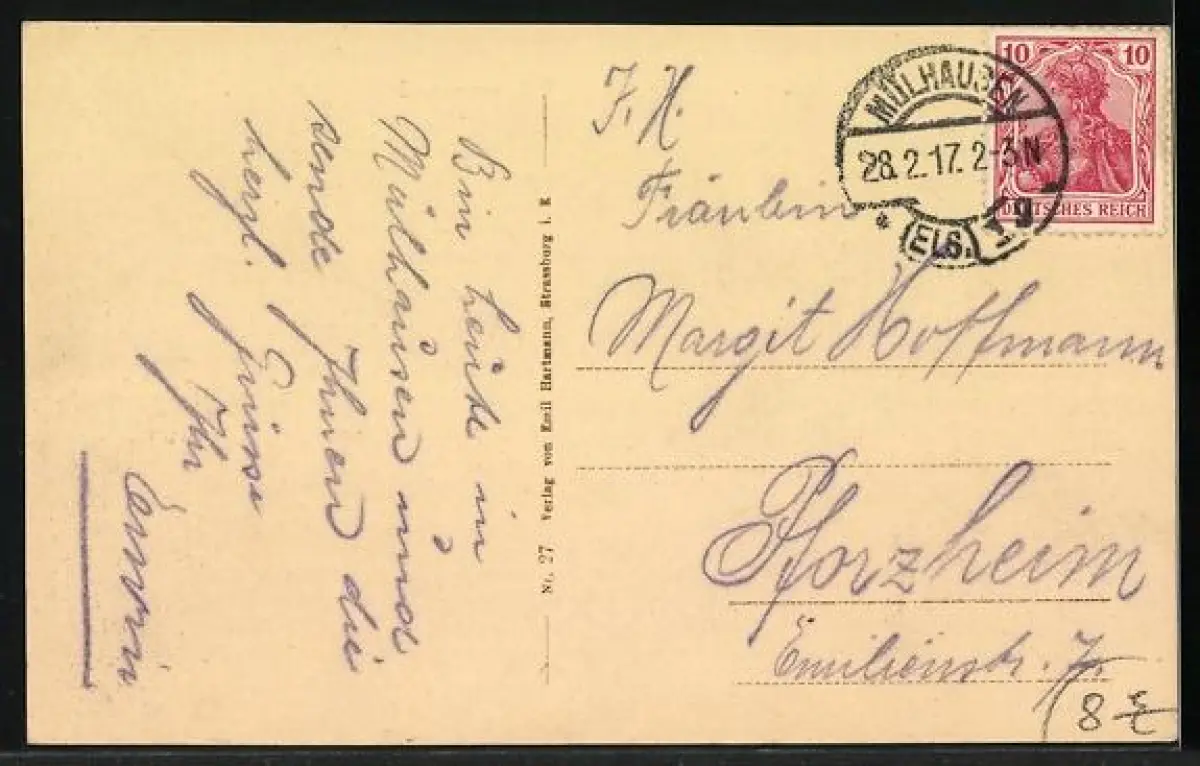 Bin heute in
Mülhausen und
sende Ihnen die
herzl. Grüsse
Ihr
Erwin
Nr. 27 Verlag von Emil Hartmann, Strassburg i. E
F. H.
Fräulein
Margit Hoffmann
Pforzheim
Emilienstr.
MÜLHAUSEN
28.2.17. 2-3N
* (ELS.) * g
10 10
DEUTSCHES REICH
8